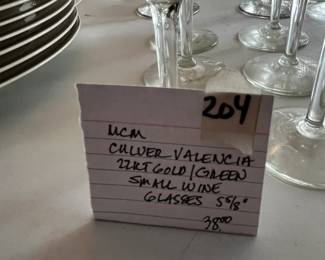 204
MCM
CULVER VALENCIA
22KT GOLD/GREEN
SMALL WINE
GLASSES 5 5/8"
38.00